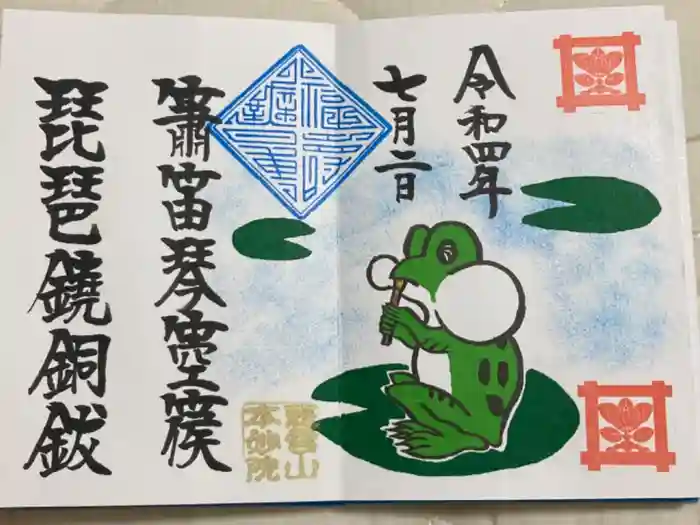 令和四年
七月二日
簫笛琴箜篌
琵琶鐃銅鈸
本妙院